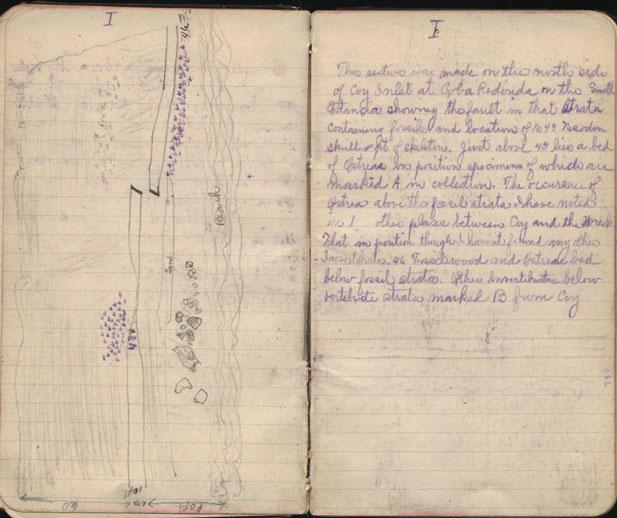 I
44
Beach
Sand
42
60
10ft
20ft
I
This section was made on the north side
of Coy Inlet at Coba Redonda on the Smith
Estancia showing the fault in that strata
containing fossils and location of No 42 Nesodon
skull & pt of skeleton. Just above 42 lies a bed
of Ostreas in position specimens of which are
marked A in collection. The occurence of
Ostrea above the fosil strata I have noted
in 1 other place between Coy and the
that in position though I havent found any other
Invertebrates. 44 Fossil wood and Ostrea bed
below fossil strata. Other Invertebrates below
vertebrate strata marked B from Coy